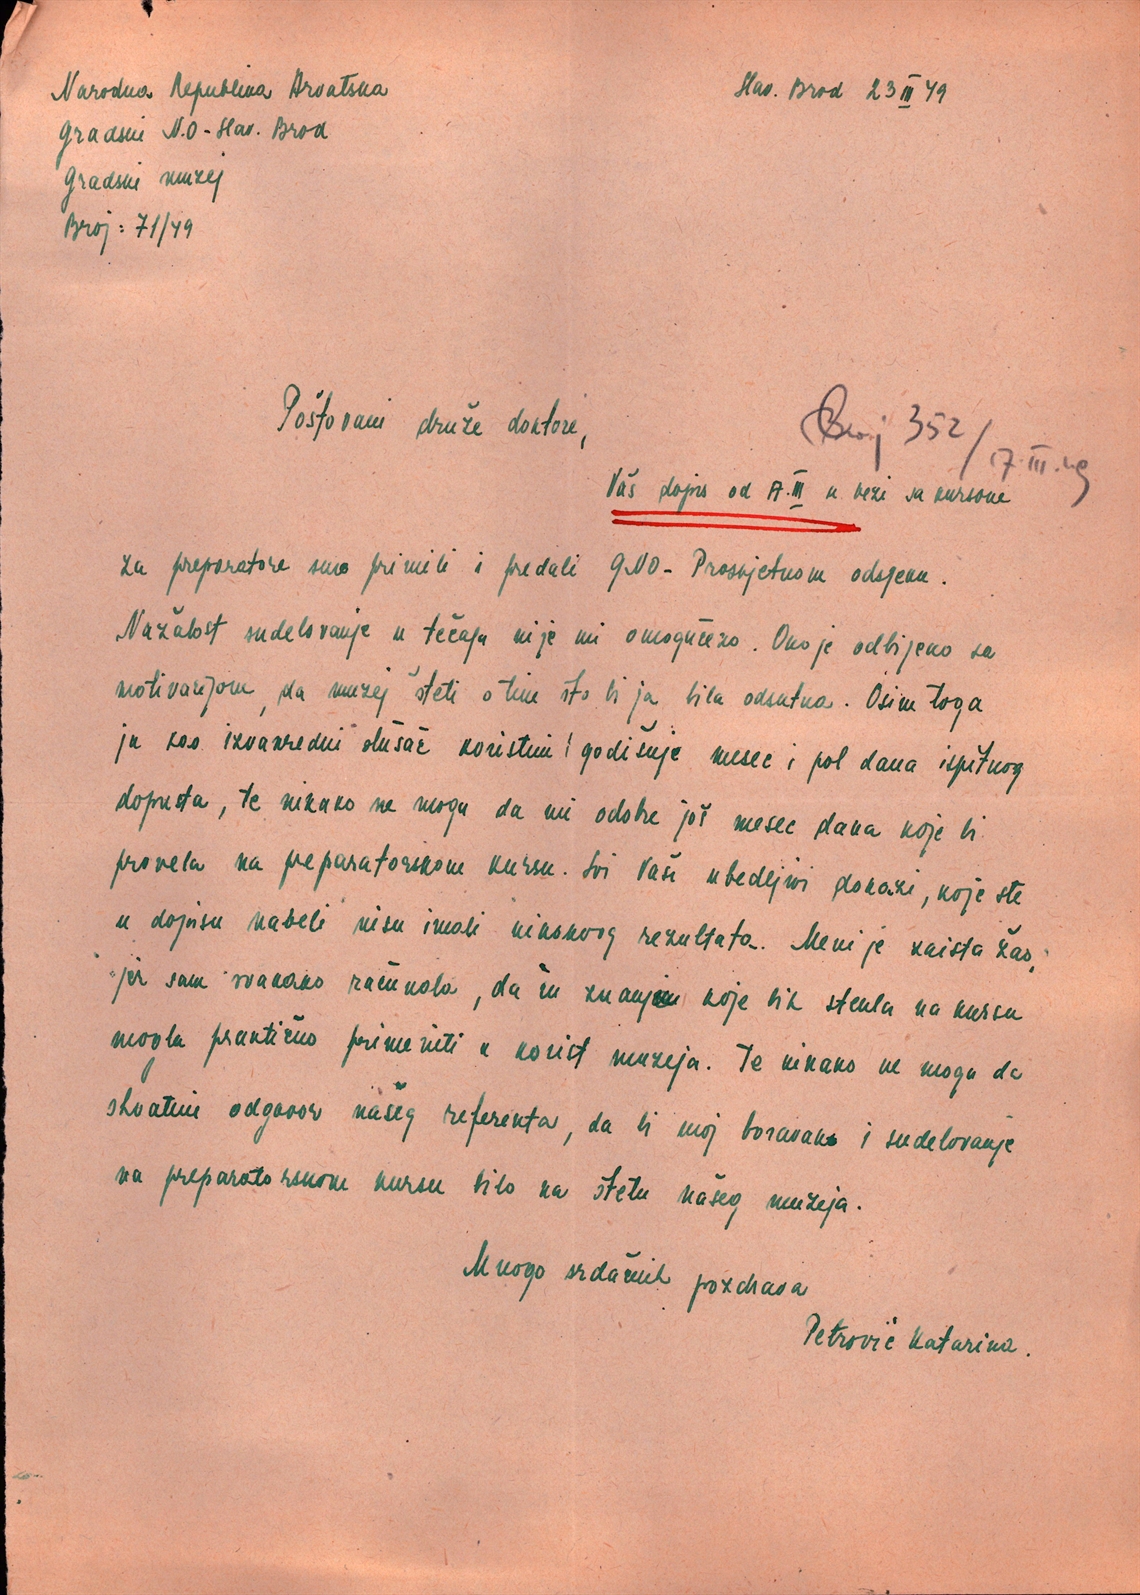 Narodna Republika Hrvatska
Gradski N.O - Slav. Brod
Gradski muzej
Broj: 71/49
Slav. Brod 23 III 49
Poštovani druže doktore,
Broj 352/17.III.49
Vaš dopis od 17.III u vezi sa kursom
za preparatore smo primili i predali GNO - Prosvjetnom odsjeku.
Nažalost sudelovanje u tečaju nije mi omogućeno. Ono je odbijeno sa
motivacijom, da muzej šteti o tim što bi ja bila odsutna. Osim toga
ja kao izvanredni slušač koristim godišnje mesec i pol dana ispitnog
dopusta, te nikako ne mogu da mi odobre još mesec dana koje bi
provela na preparatorskom kursu. Svi Vaši ubedljivi dokazi, koje ste
u dopisu naveli nisu imali nikakvog rezultata. Meni je zaista žao,
jer sam svakako računala, da ću znanje koje bih stekla na kursu
mogla praktično primeniti u korist muzeja. Te nikako ne mogu da
shvatim odgovor našeg referenta, da bi moj boravak i sudelovanje
na preparatorskom kursu bilo na štetu našeg muzeja.
Mnogo srdačnih pozdrava
Petrović Katarina.